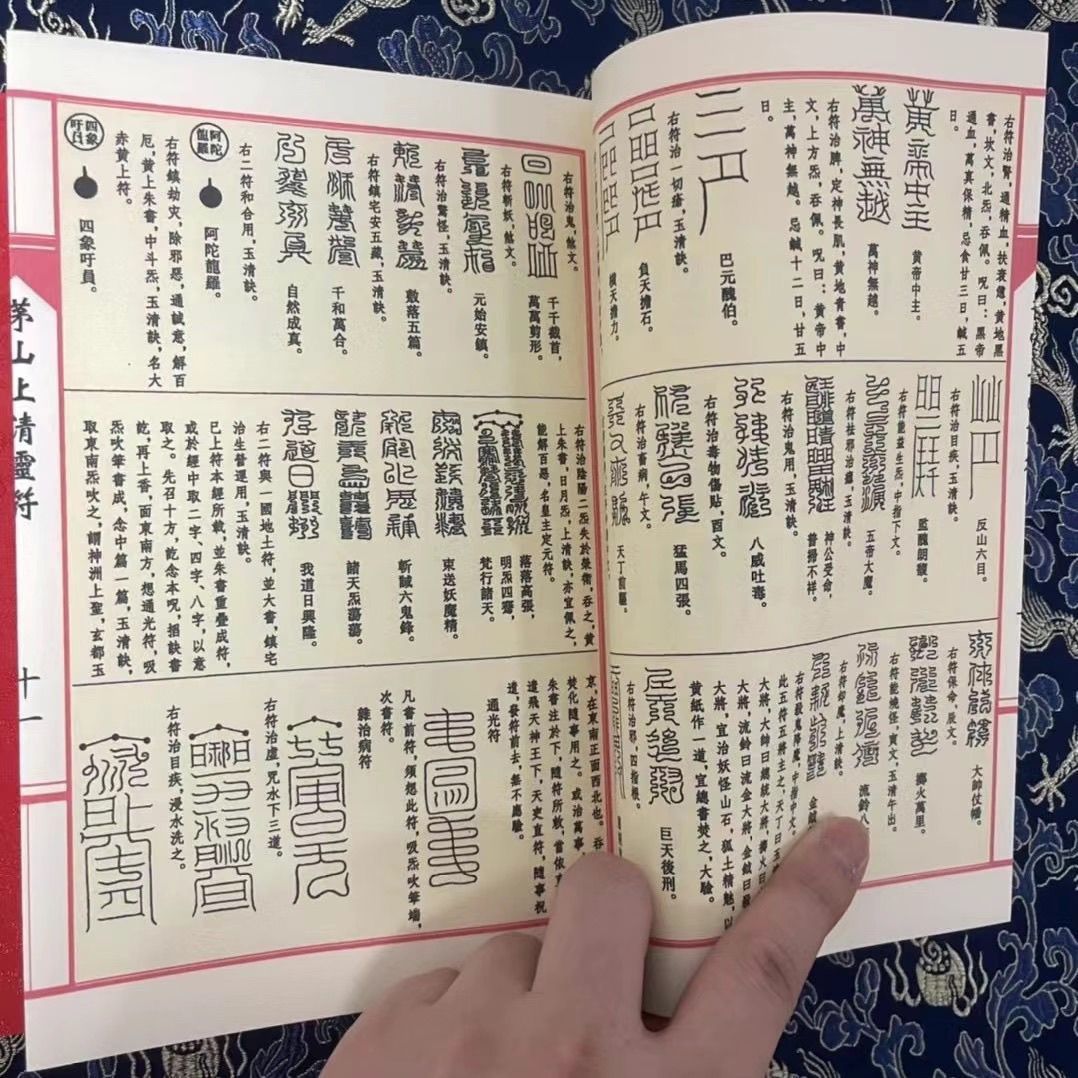 右符治腎，通精血，扶衰憊，黃地黑
書，坎文，北炁，吞佩。呪曰：黑帝
通血，萬真保精，忌食廿三日，鹹五
日。
黃帝中主。
萬神無越。
右符治脾，定神長肌，黃地青書，中
文，上方炁，吞佩。呪曰：黃帝中
主，萬神無越。忌鹹十二日，廿五
日。
巴元醜伯。
右符治一切瘡，玉清訣。
負天擔石。
反山六目。
右符治目疾，玉清訣。
監醜朗馥。
右符能益生炁，中指下文。
五帝大魔。
右符祛邪治瘟，玉清訣。
神公受命，
普掃不祥。
右符治鬼用，玉清訣。
八威吐毒。
右符治毒物傷貼，酉文。
猛馬四張。
右符治畜病，午文。
天丁前驅。
大帥仗幡。
右符保命，辰文。
擲火萬里。
右符能燒怪，寅文，玉清午出。
流鈴八
右符卻魔，上清訣。
金鉞
右符殺鬼降魔，中指中文。
此五符五將主之，天丁曰
大將，大帥曰總統大將，擲火曰
大將，流鈴曰流金大將，金鉞曰
大將，宜治妖怪山石，狐土精魅，以
黃紙作一道，宜總書焚之，大驗。
巨天後刑。
右符治邪，四指根。
右符治鬼，煞文。
千千截首，
萬萬剪形。
右符斬妖，煞文。
元始安鎮。
右符治驚怪，玉清訣。
敷落五篇。
右符鎮宅安五藏，玉清訣。
千和萬合。
自然成真。
右二符和合用，玉清訣。
阿陀龍羅
阿陀龍羅。
右符鎮劫災，除邪惡，通誠意，解百
厄，黃上朱書，中斗炁，玉清訣，名大
赤黃上符。
四象吁員
四象吁員。
右符治陰陽二炁失於榮衛，吞之，黃
上朱書，日月炁，上清訣，亦宜佩之，
能解百惡，名皇主定元符。
落落高張，
明炁四騫，
梵行諸天。
束送妖魔精。
斬馘六鬼鋒。
諸天炁蕩蕩。
我道日興隆。
右二符與一國地土符，並大書，鎮宅
治生營運用，玉清訣。
已上符本經所載，並朱書重疊成符，
或於經中取二字、四字、八字，以意
取之。先召十方，訖念本呪，掐訣書
訖，再上香，面東南方，想通光符，吸
炁吹筆書成，念中篇一篇，玉清訣，
取東南炁吹之，謂神洲上聖，玄都玉
京，在東南正面西北也。吞
焚化隨事用之。或治萬事，
朱書注於下，隨符所敕，當依
遣飛天神王下，天吏直符，隨事祝
道，發符前去，無不應驗。
通光符
凡書前符，須想此符，吸炁吹筆端，
次書符。
雜治病符
右符治虛，咒水下三道。
右符治目疾，浸水洗之。
茅山上清靈符
十一